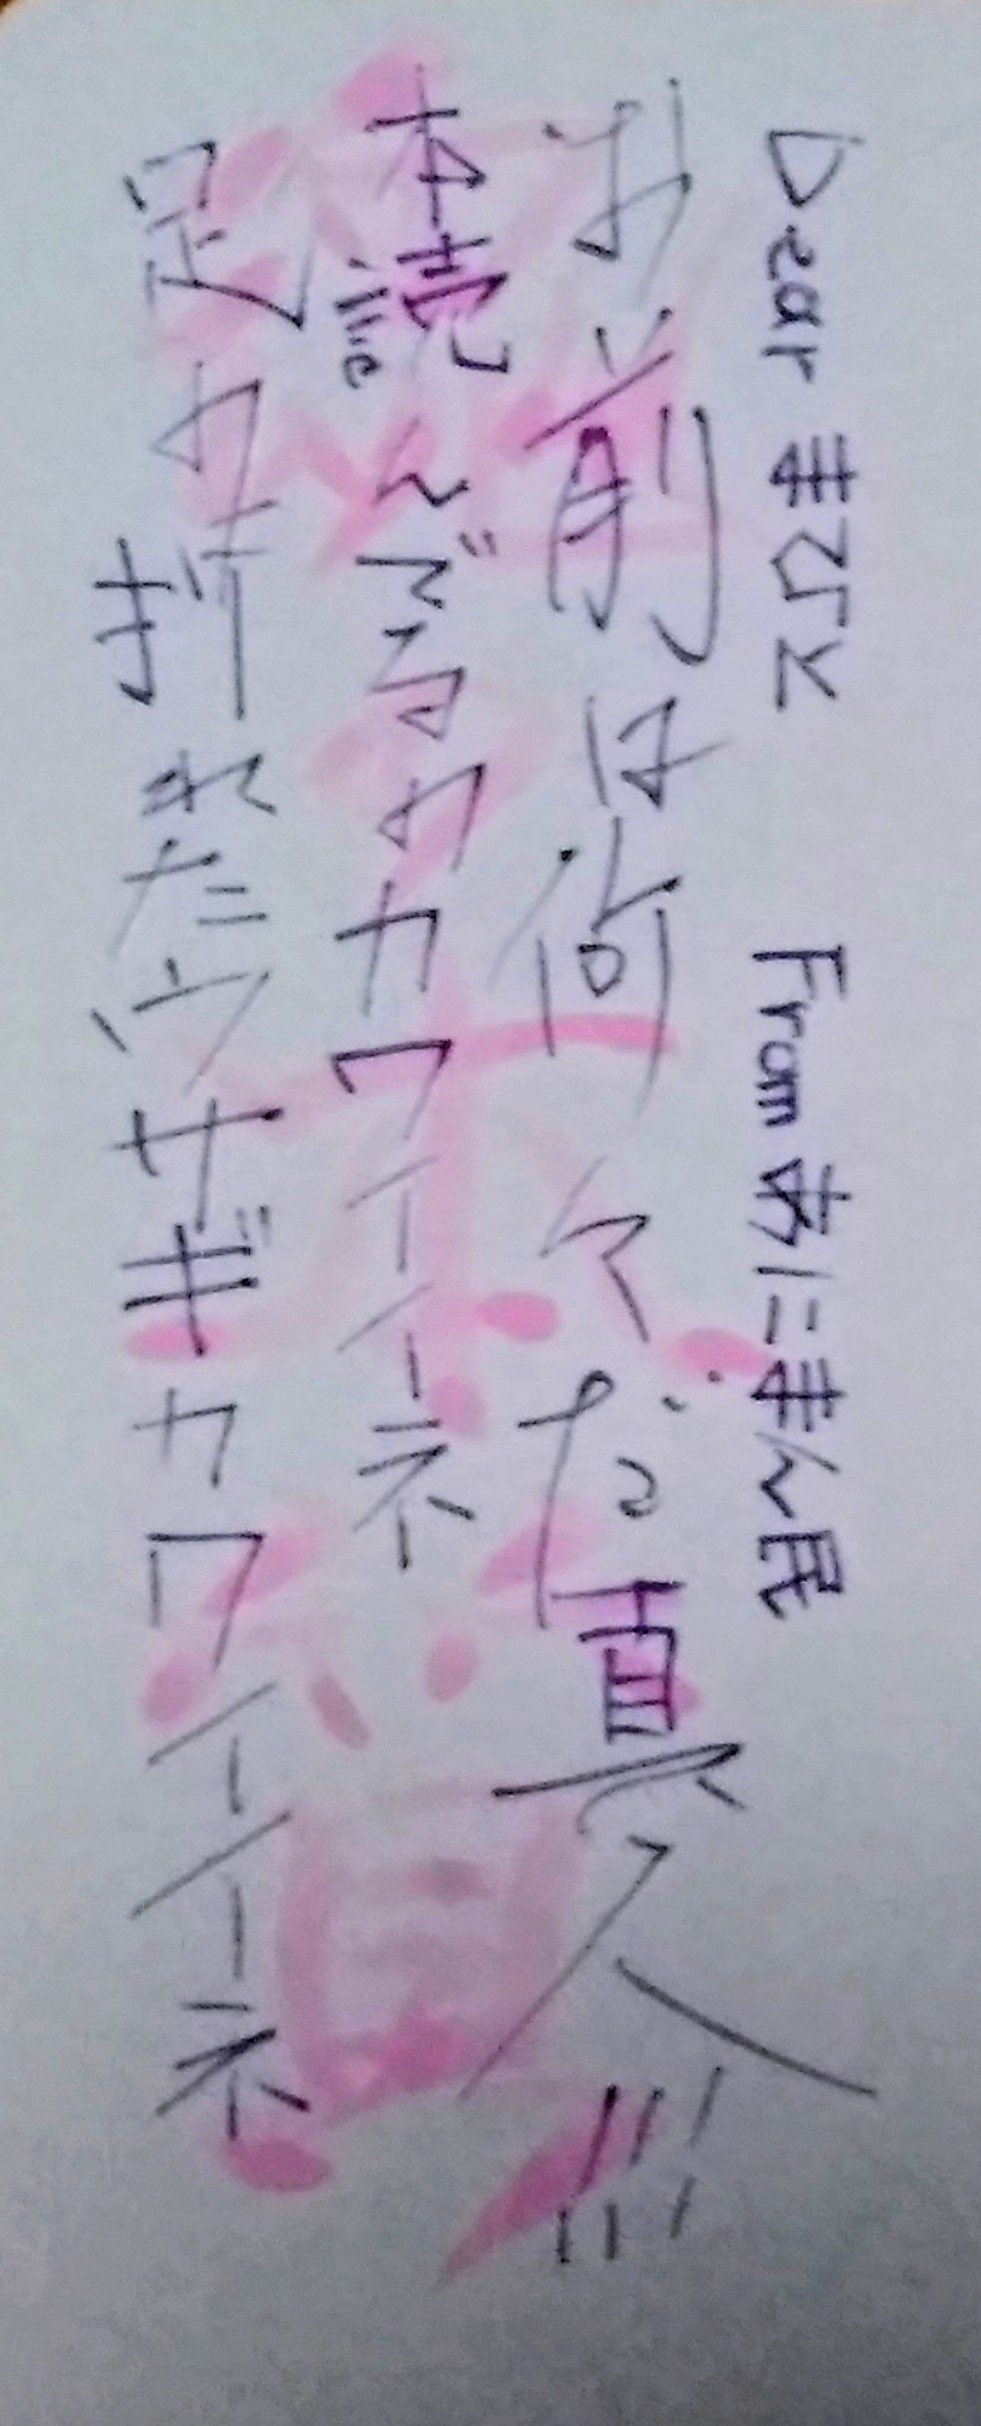 Dear まひと From あにまん民
お前は何々な真人
本読んでるのカワイイネ
足の折れたウサギカワイイネ